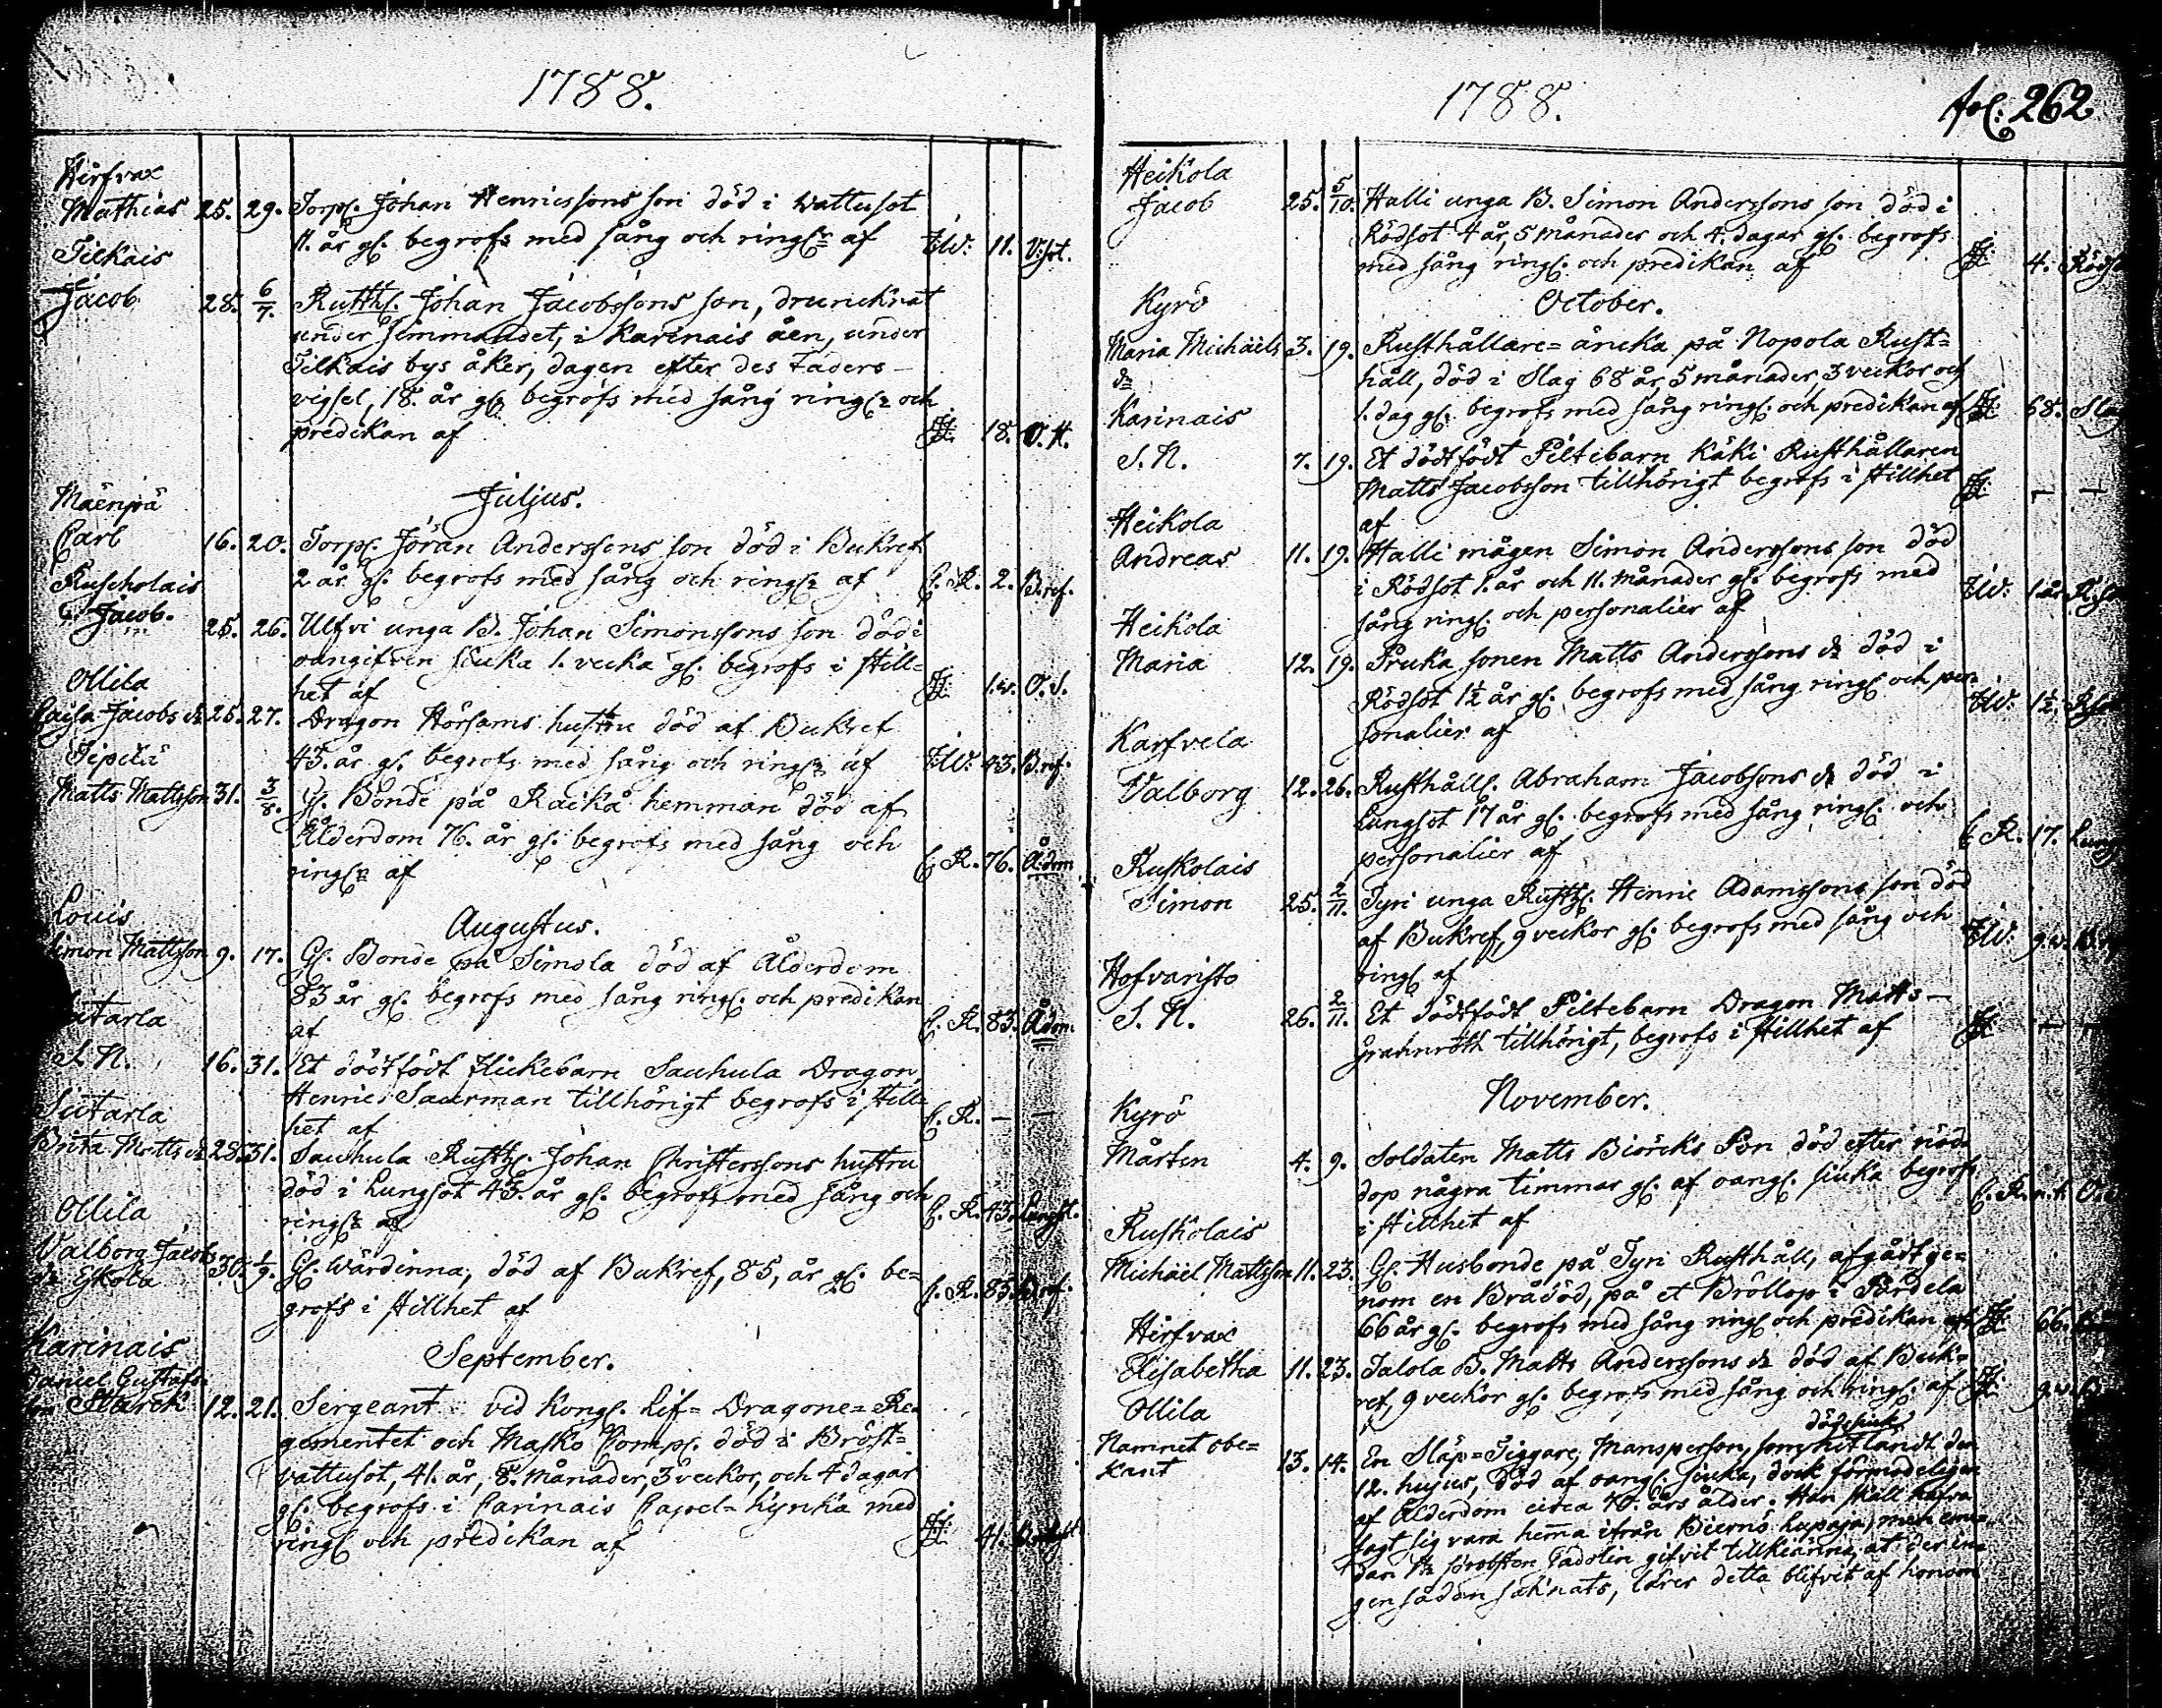 1788.
Hirfvax
Mathias 25. 29. Torp. Johan Henricssons son död i Wattusot
11. år gl. begrofs med sång och ringn: af 11. W:sot.
Tilkais
Jacob 28. 6/7. Rustth. Johan Jacobssons son, druncknat
under simmandet, i Karinais åen, under
Tilkais bys åker, dagen efter des Faders-
vigsel, 18. år gl. begrofs med sång ringn: och
predikan af 18.
Juljus.
Mäenpä
Carl 16. 20. Torp. Jöran Anderssons son död i Bukref
2 år gl. begrofs med sång och ringn: af C. R. 2. B.ref.
Ruscholais
Jacob. 25. 26. Ulfvi unga B. Johan Simonssons son död i
oangifven siuka 1. vecka gl. begrofs i still=
het af 1.w. O. S.
Ollila
Caisa Jacobs dr 25. 27. Dragon Hörsams hustru död af Bukref
43. år gl. begrofs med sång och ringn: af 43. B.ref.
Sipilä
Matts Mattsson 31. 3/8. Gl. Bonde på Raikå hemman död af
Ålderdom 76. år gl. begrofs med sång och
ringn: af C. R. 76. Å:dom
Augustus.
Louis
Simon Mattsson 9. 17. Gl. Bonde på Simola död af Ålderdom
83 år gl. begrofs med sång ringn. och predikan
af C. R. 83. Å:dm.
S. N. 16. 31. Et dödfödt flickebarn Sauhula Dragon
Henric Sauerman tillhörigt begrofs i still=
het af C. R. — —
Sutarla
Brita Matts dr 28. 31. Sauhula Rusth. Johan Christerssons hustru
död i Lungsot 43. år gl. begrofs med sång och
ringn: af C. R. 43. Lungst.
Ollila
Valborg Jacobs
dr Eskola 30. 1/9. Gl. Wärdinna, död af Bukref, 85, år gl. be=
grofs i stillhet af C. R. 85. B.ref.
September.
Karinais
Daniel Gustafs=
son Starck 12. 21. Sergeant vid Kongl. Lif= Dragone= Re=
gementet och Masko Comp. död i Bröst=
vattusot, 41. år, 8. månader, 3 veckor, och 4 dagar
gl. begrofs i Carinais Capel= kyrka med
ringn och predikan af 41.
1788. fol: 262
Heikola
Jacob 25. 5/10. Halli unga B. Simon Anderssons son död i
Rödsot 4 år, 5 månader och 4. dagar gl. begrofs
med sång ringn. och predikan af 4.
October.
Kyrö
Maria Michaels 3. 19. Rusthållare= äncka på Nopola Rust=
dr håll, död i Slag 68 år, 5 månader, 3 veckor och
1. dag gl. begrofs med sång ringn. och predikan af 68.
Karinais
S. N. 7. 19. Et dödfödt Piltebarn Käki Rusthållaren
Matts Jacobsson tillhörigt begrofs i stillhet
af
Heikola
Andreas 11. 19. Halli mågen Simon Anderssons son död
i Rödsot 1. år och 11. månader gl. begrofs med
sång ringn. och personalier af
Heikola
Maria 12. 19. Pruka sonen Matts Anderssons dr död i
Rödsot 1½ år gl. begrofs med sång ringn och per=
sonalier af 1½.
Karfvela
Valborg 12. 26. Rusthåll. Abraham Jacobsons dr död i
Lungsot 17 år gl. begrofs med sång ringn. och
personalier af C. R. 17.
Ruskolais
Simon 25. 2/11. Jyri unga Rusth. Henric Adamssons son död
af Bukref, 9 veckor gl. begrofs med sång och
ringn af 9.w.
Hofvaristo
S. N. 26. 2/11. Et dödfödt Piltebarn Dragon Matts-
Granroth tillhörigt, begrofs i stillhet af
November.
Kyrö
Mårten 4. 9. Soldaten Matts Biörcks Son död efter nöd=
dop några timmar gl. af oangf. siuka begrofs
i stillhet af C. R.
Ruskolais
Michäel Mattsson 11. 23. Gl. Husbonde på Jyri Rusthåll, afgådt ge=
nom en Brådöd, på et Bröllop i Pärdela
66 år gl. begrofs med sång ringn och predikan 66.
Hirfvax
Elisabetha 11. 23. Jalola B. Matts Anderssons dr död af Buk=
ref, 9 veckor gl. begrofs med sång och ringn. af 9.w.
Ollila
Namnet obe=
kant 13. 14. En Släp= Tiggare, Mansperson, som dödssiuk hitlandt den
12. hujus, död af oangf. siuka, dock förmodeligen
af Ålderdom circa 70. års ålder. Han skall hafva
sagt sig vara hemma ifrån Bierno Lupaja, men
Probsten Gadolin gifvit tillkiänna, at der in=
gen sådan saknats, lärer detta blifvit af honom